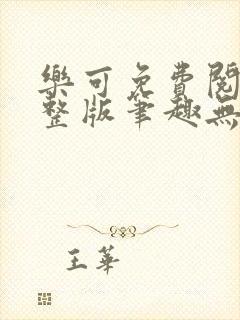 樂可免費閱
整版筆趣無
王華